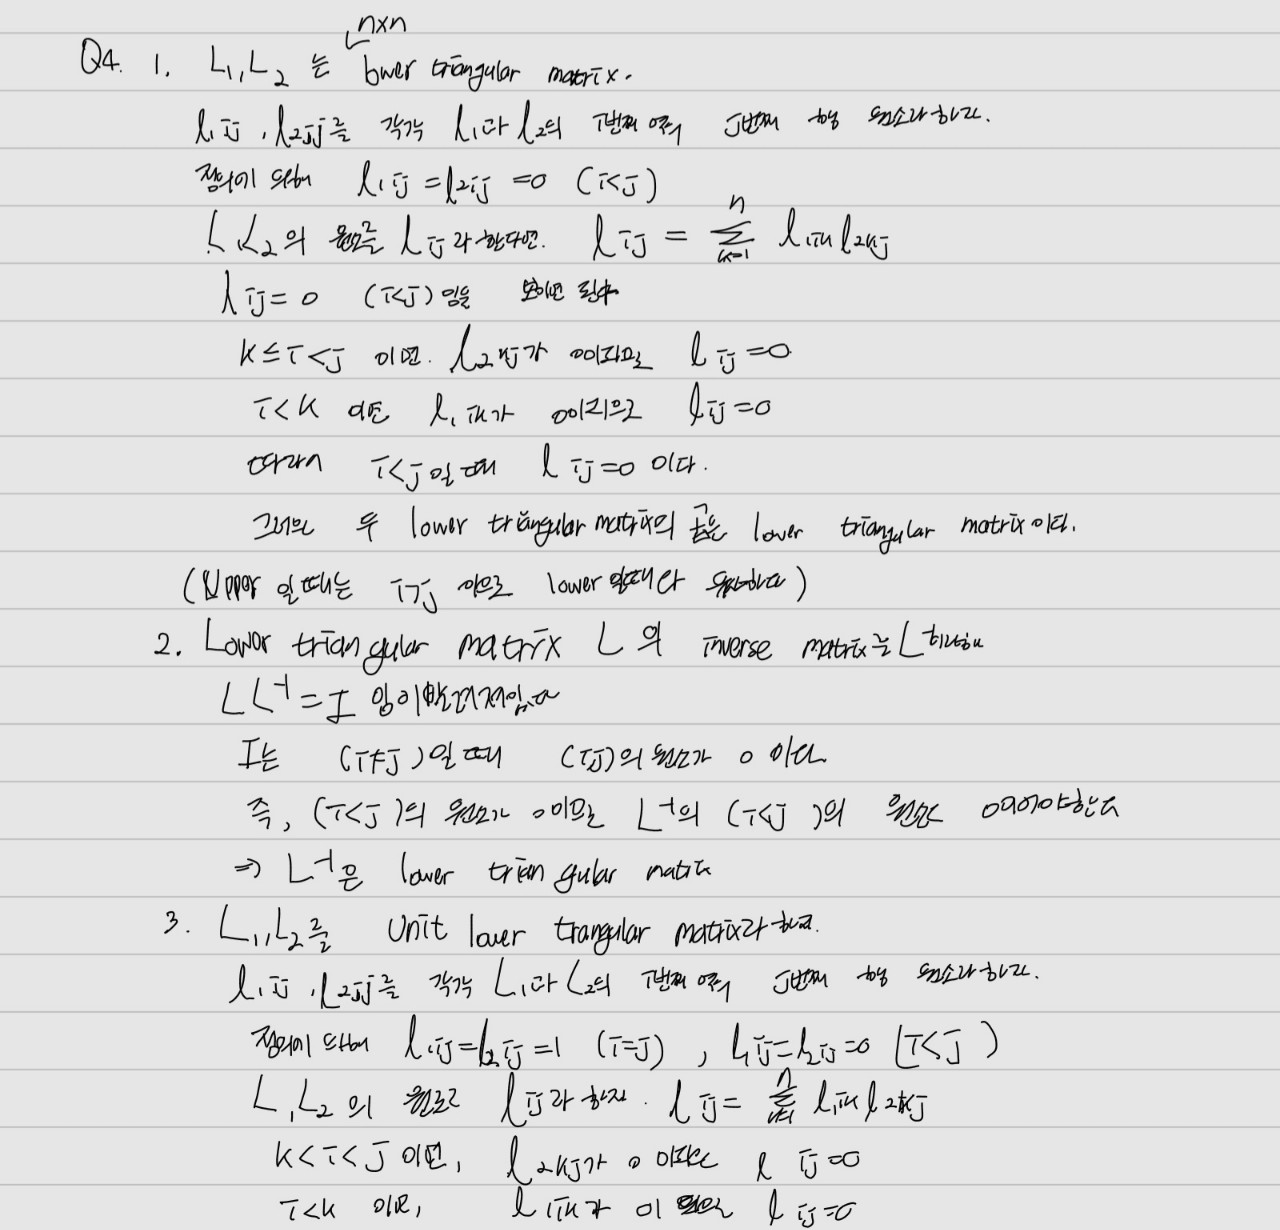 n×n
Q4. 1. L₁, L₂ 는 lower triangular matrix.
l₁ij, l₂ij를 각각 L₁과 L₂의 i번째 열의 j번째 행 원소라 하자.
정의에 의해 l₁ij = l₂ij = 0 (i<j)
L₁L₂의 원소를 lij라 한다면. lij = Σ_{k=1}^{n} l₁ik l₂kj
lij = 0 (i<j) 임을 보이면 된다
k≤i<j 이면. l₂kj가 0이므로 lij=0
i<k 이면 l₁ik가 0이므로 lij=0
따라서 i<j일 때 lij=0 이다.
그러므로 두 lower triangular matrix의 곱은 lower triangular matrix이다.
(Upper 일때는 i>j 이므로 lower일때와 동일하다)
2. Lower triangular matrix L의 inverse matrix를 L⁻¹
LL⁻¹ = I
I는 (i≠j)일 때 (ij)의 원소가 0 이다
즉, (i<j)의 원소가 0이므로 L⁻¹의 (i<j)의 원소도 0이어야한다
⇒ L⁻¹은 lower triangular matrix
3. L₁, L₂를 Unit lower trangular matrix라 하자.
l₁ij, l₂ij를 각각 L₁과 L₂의 i번째 열의 j번째 행 원소라 하자.
정의에 의해 l₁ij = l₂ij = 1 (i=j), l₁ij = l₂ij = 0 (i<j)
L₁L₂의 원소로 lij라 하자. lij = Σ_{k=1}^{n} l₁ik l₂kj
k<i<j 이면, l₂kj가 0 이므로 lij=0
i<k 이면, l₁ik가 0 lij=0